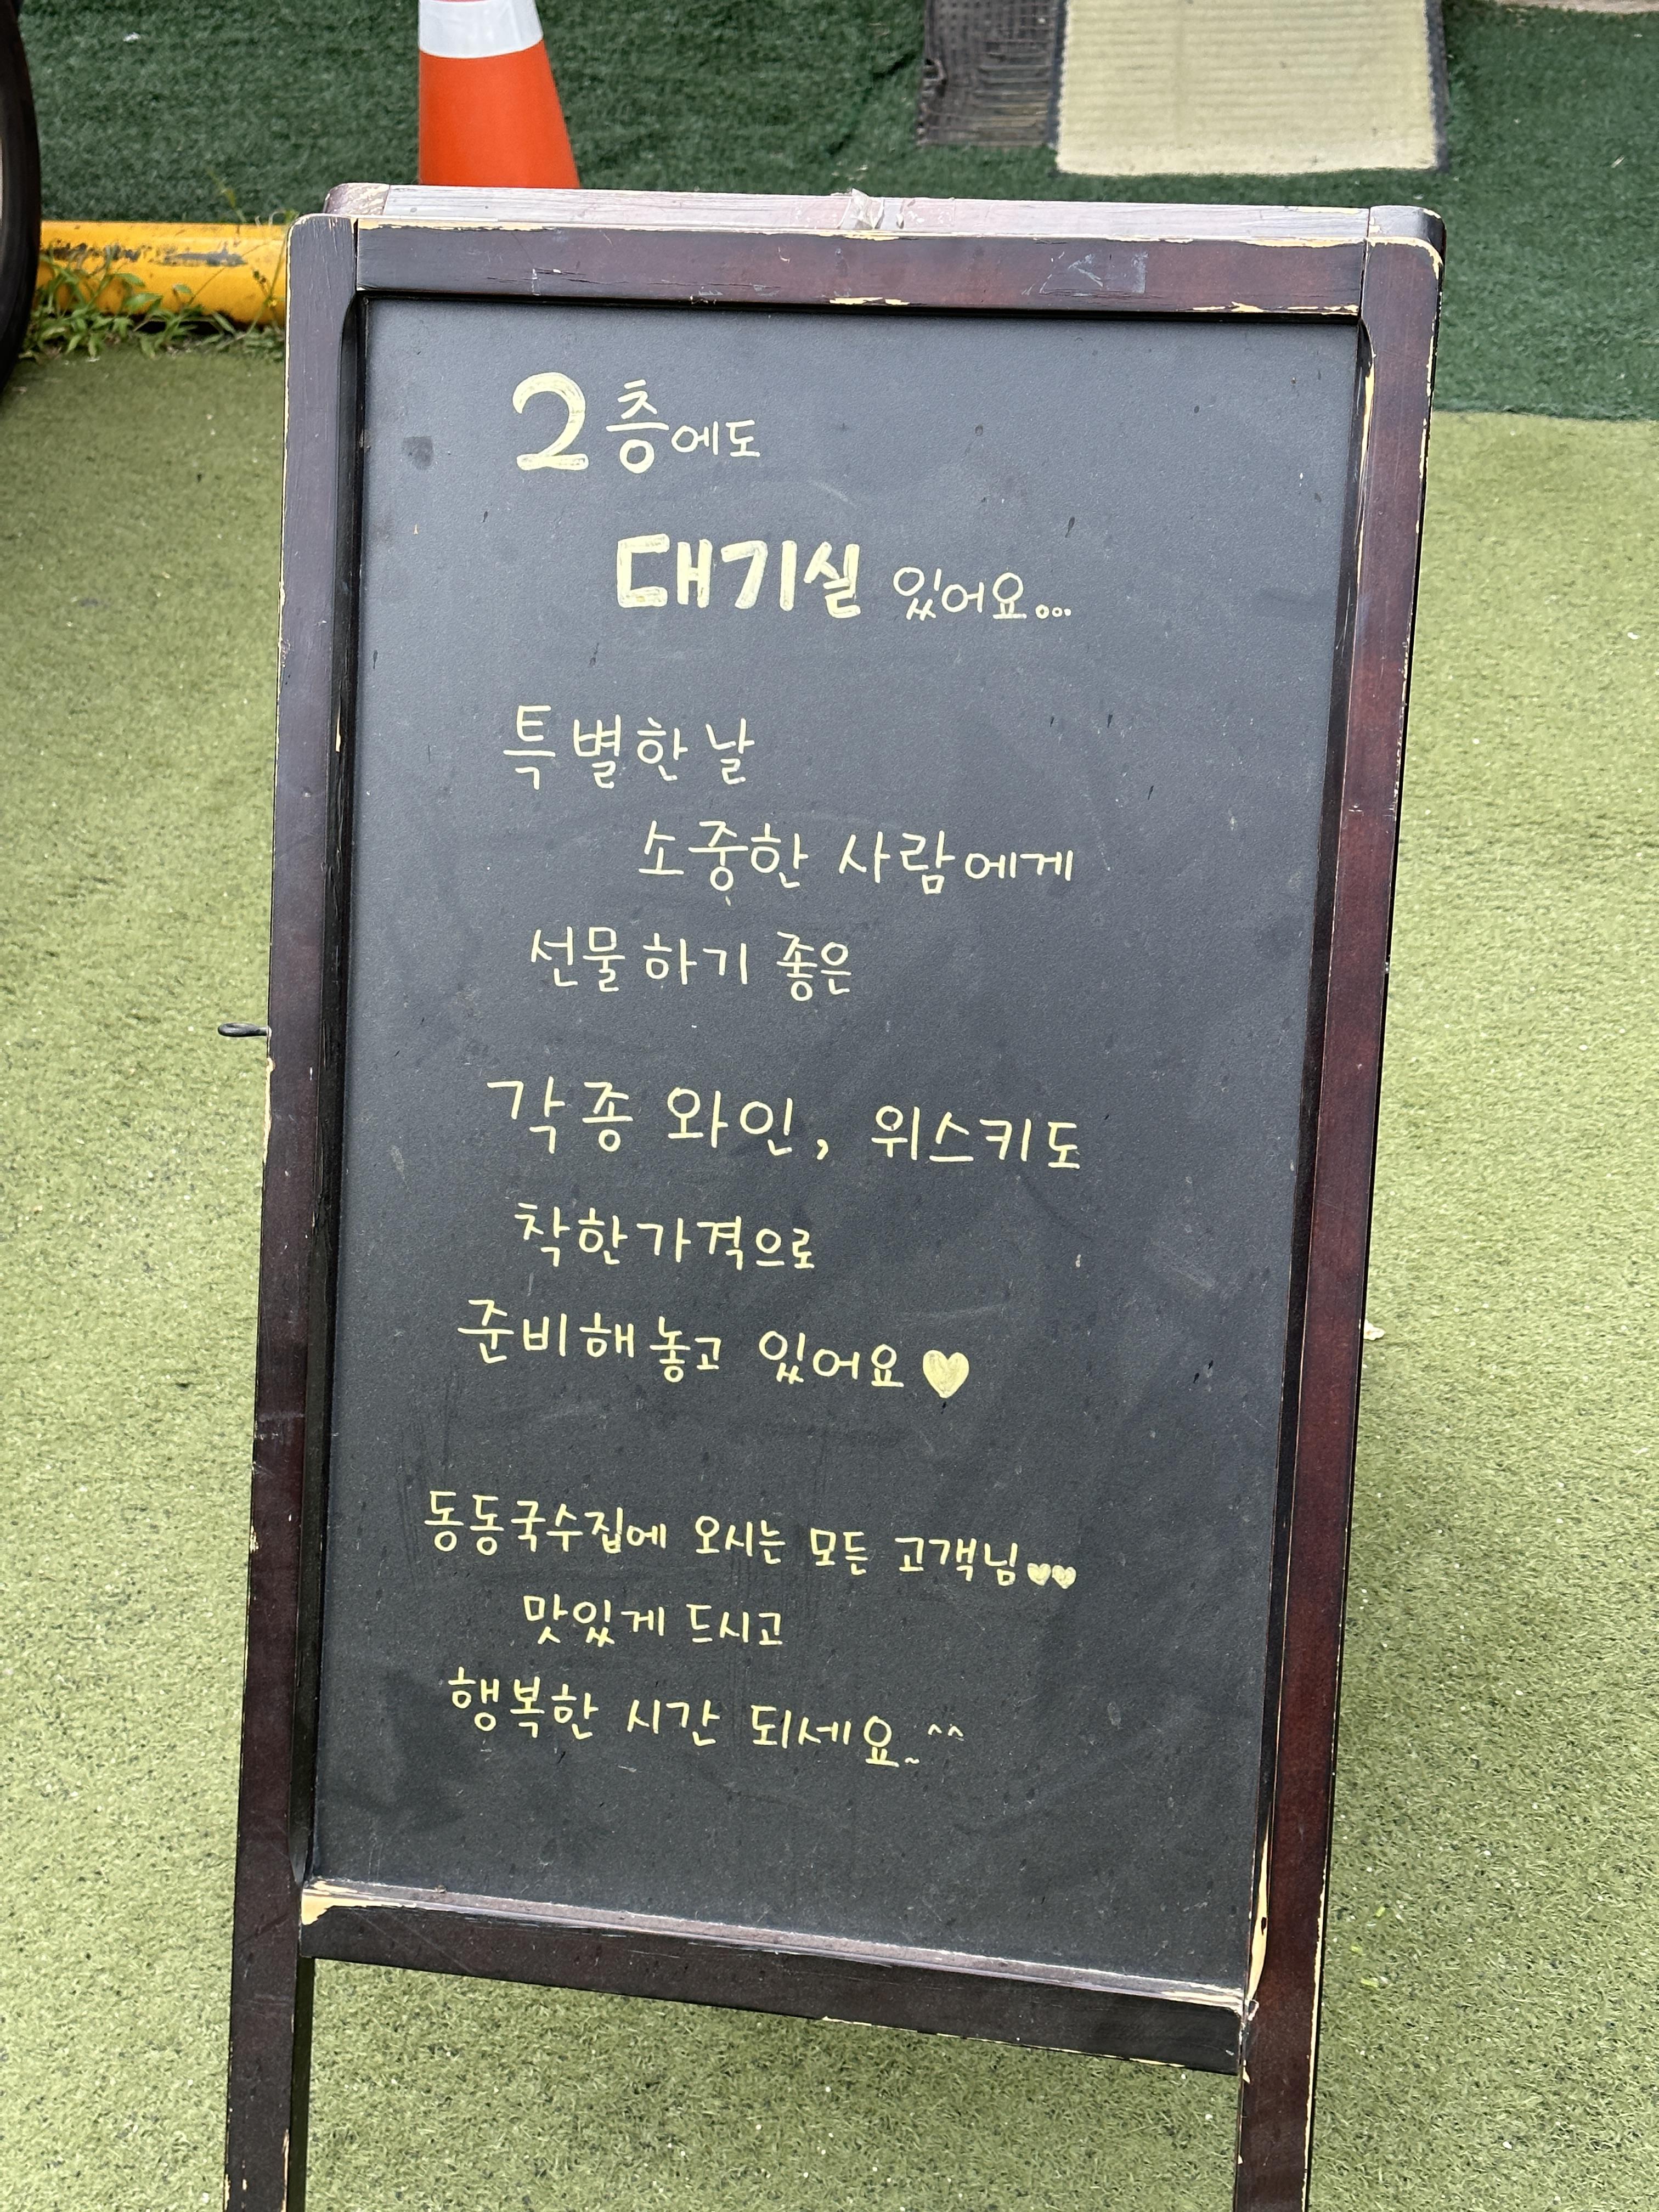 2층에도
대기실 있어요...
특별한 날
소중한 사람에게
선물하기 좋은
각종 와인, 위스키도
착한가격으로
준비해놓고 있어요♥
동동국수집에 오시는 모든 고객님♥♥
맛있게 드시고
행복한 시간 되세요~^^